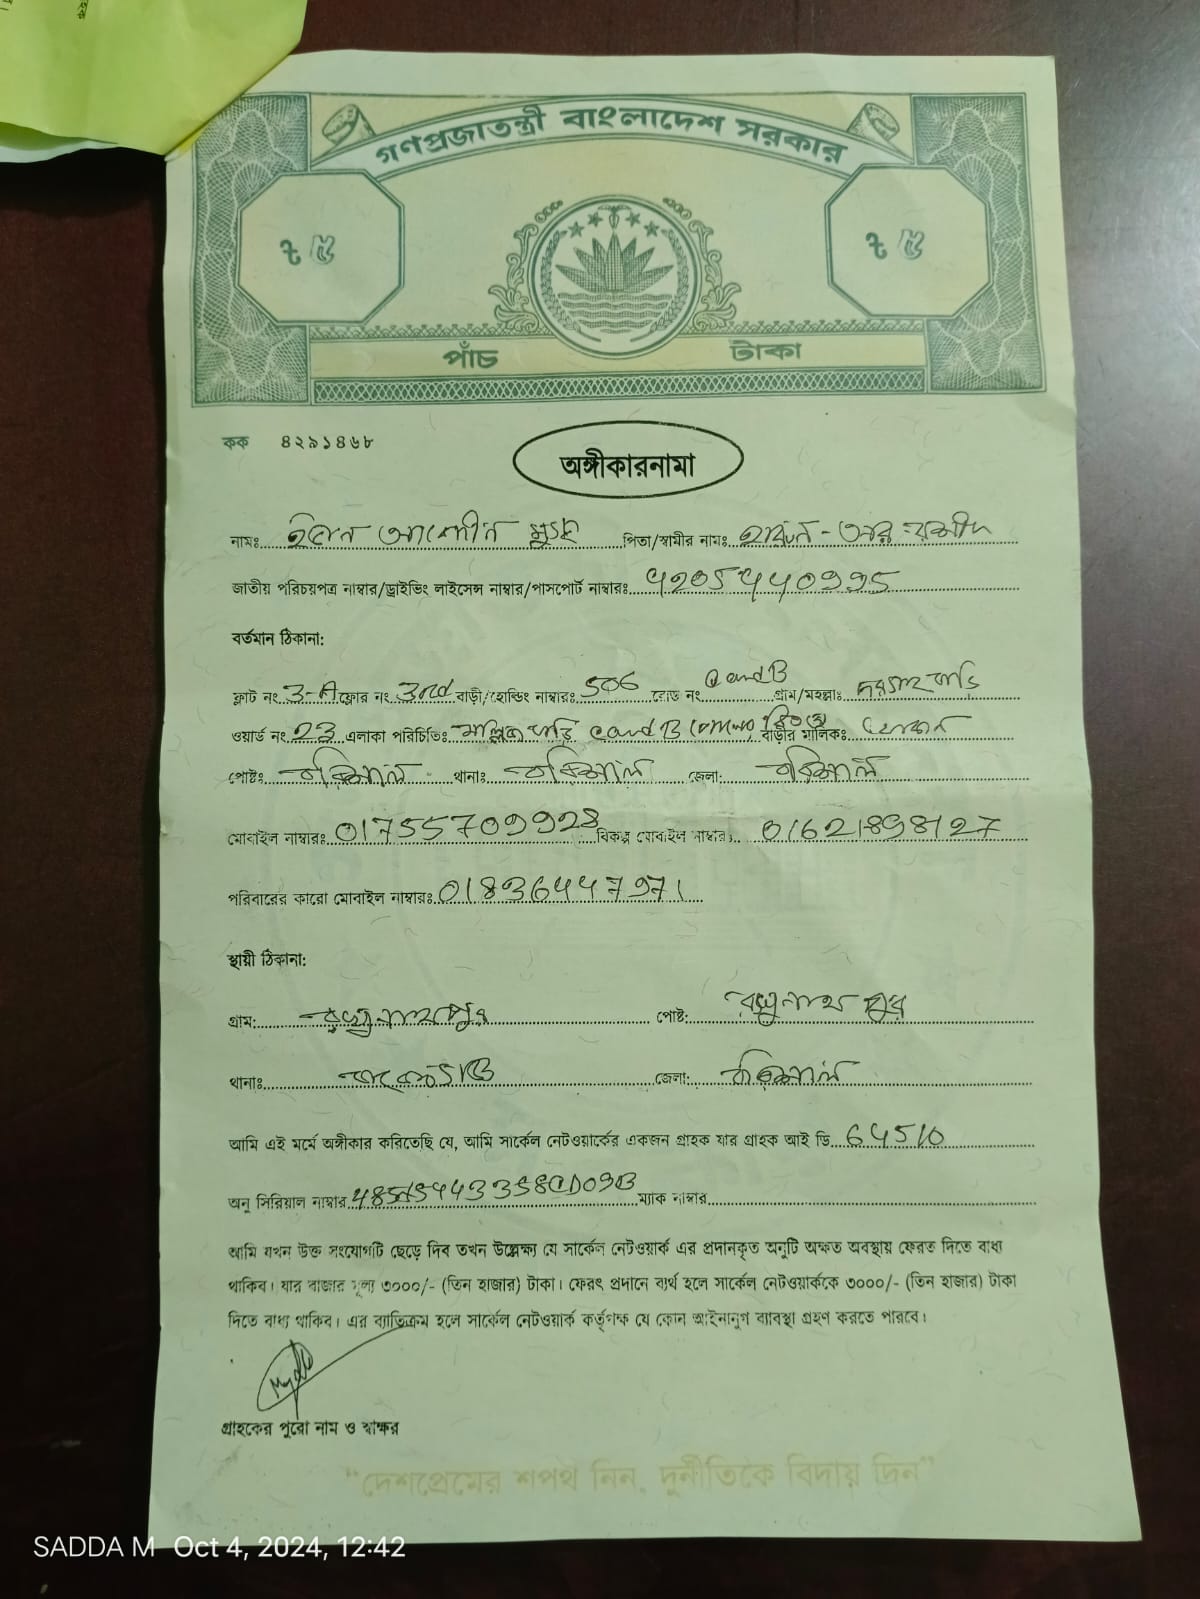 গণপ্রজাতন্ত্রী বাংলাদেশ সরকার
৳ ৫ ৳ ৫
পাঁচ টাকা
কক ৪২৯১৪৬৮
অঙ্গীকারনামা
নামঃ পিতা/স্বামীর নামঃ হারুন-অর-রশীদ
জাতীয় পরিচয়পত্র নাম্বার/ড্রাইভিং লাইসেন্স নাম্বার/পাসপোর্ট নাম্বারঃ
বর্তমান ঠিকানা:
ফ্লাট নং 3-A ফ্লোর নং 3rd বাড়ী/হোল্ডিং নাম্বারঃ 506 রোড নং C and B গ্রাম/মহল্লাঃ
ওয়ার্ড নং 23 এলাকা পরিচিতিঃ মল্লিক বাড়ি C and B বাড়ীর মালিকঃ
পোষ্টঃ বরিশাল থানাঃ বরিশাল জেলা: বরিশাল
মোবাইল নাম্বারঃ বিকল্প মোবাইল নাম্বারঃ 01621898127
পরিবারের কারো মোবাইল নাম্বারঃ
স্থায়ী ঠিকানা:
গ্রাম: রঘুনাথপুর পোষ্ট: রঘুনাথপুর
থানাঃ জেলা: বরিশাল
আমি এই মর্মে অঙ্গীকার করিতেছি যে, আমি সার্কেল নেটওয়ার্কের একজন গ্রাহক যার গ্রাহক আই ডি 64510
অনু সিরিয়াল নাম্বার ম্যাক নাম্বার
আমি যখন উক্ত সংযোগটি ছেড়ে দিব তখন উল্লেক্ষ্য যে সার্কেল নেটওয়ার্ক এর প্রদানকৃত অনুটি অক্ষত অবস্থায় ফেরত দিতে বাধ্য
থাকিব। যার বাজার মূল্য ৩০০০/- (তিন হাজার) টাকা। ফেরৎ প্রদানে ব্যর্থ হলে সার্কেল নেটওয়ার্ককে ৩০০০/- (তিন হাজার) টাকা
দিতে বাধ্য থাকিব। এর ব্যতিক্রম হলে সার্কেল নেটওয়ার্ক কর্তৃপক্ষ যে কোন আইনানুগ ব্যাবস্থা গ্রহণ করতে পারবে।
গ্রাহকের পুরো নাম ও স্বাক্ষর
“দেশপ্রেমের শপথ নিন, দুর্নীতিকে বিদায় দিন”
SADDA M Oct 4, 2024, 12:42